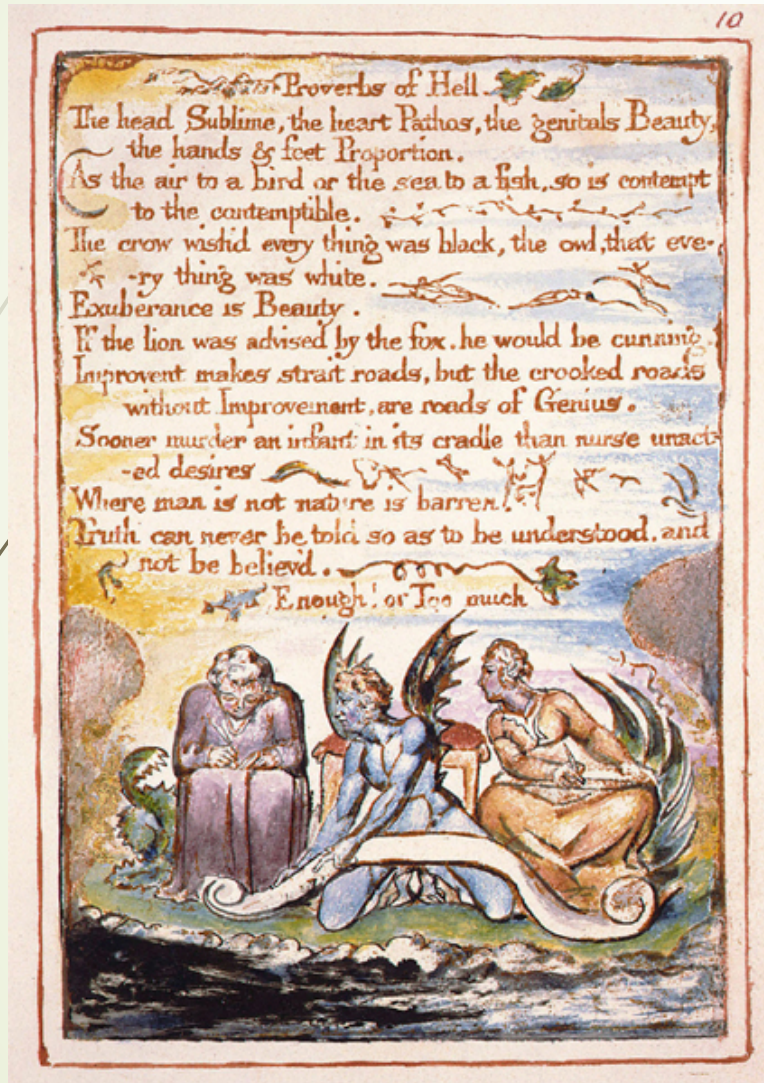 10
Proverbs of Hell.
The head Sublime, the heart Pathos, the genitals Beauty,
the hands & feet Proportion.
As the air to a bird or the sea to a fish, so is contempt
to the contemptible.
The crow wish'd every thing was black, the owl, that eve-
-ry thing was white.
Exuberance is Beauty.
If the lion was advised by the fox. he would be cunning.
Improvent makes strait roads, but the crooked roads
without Improvement, are roads of Genius.
Sooner murder an infant in its cradle than nurse unact-
-ed desires
Where man is not nature is barren.
Truth can never be told so as to be understood, and
not be believ'd.
Enough! or Too much